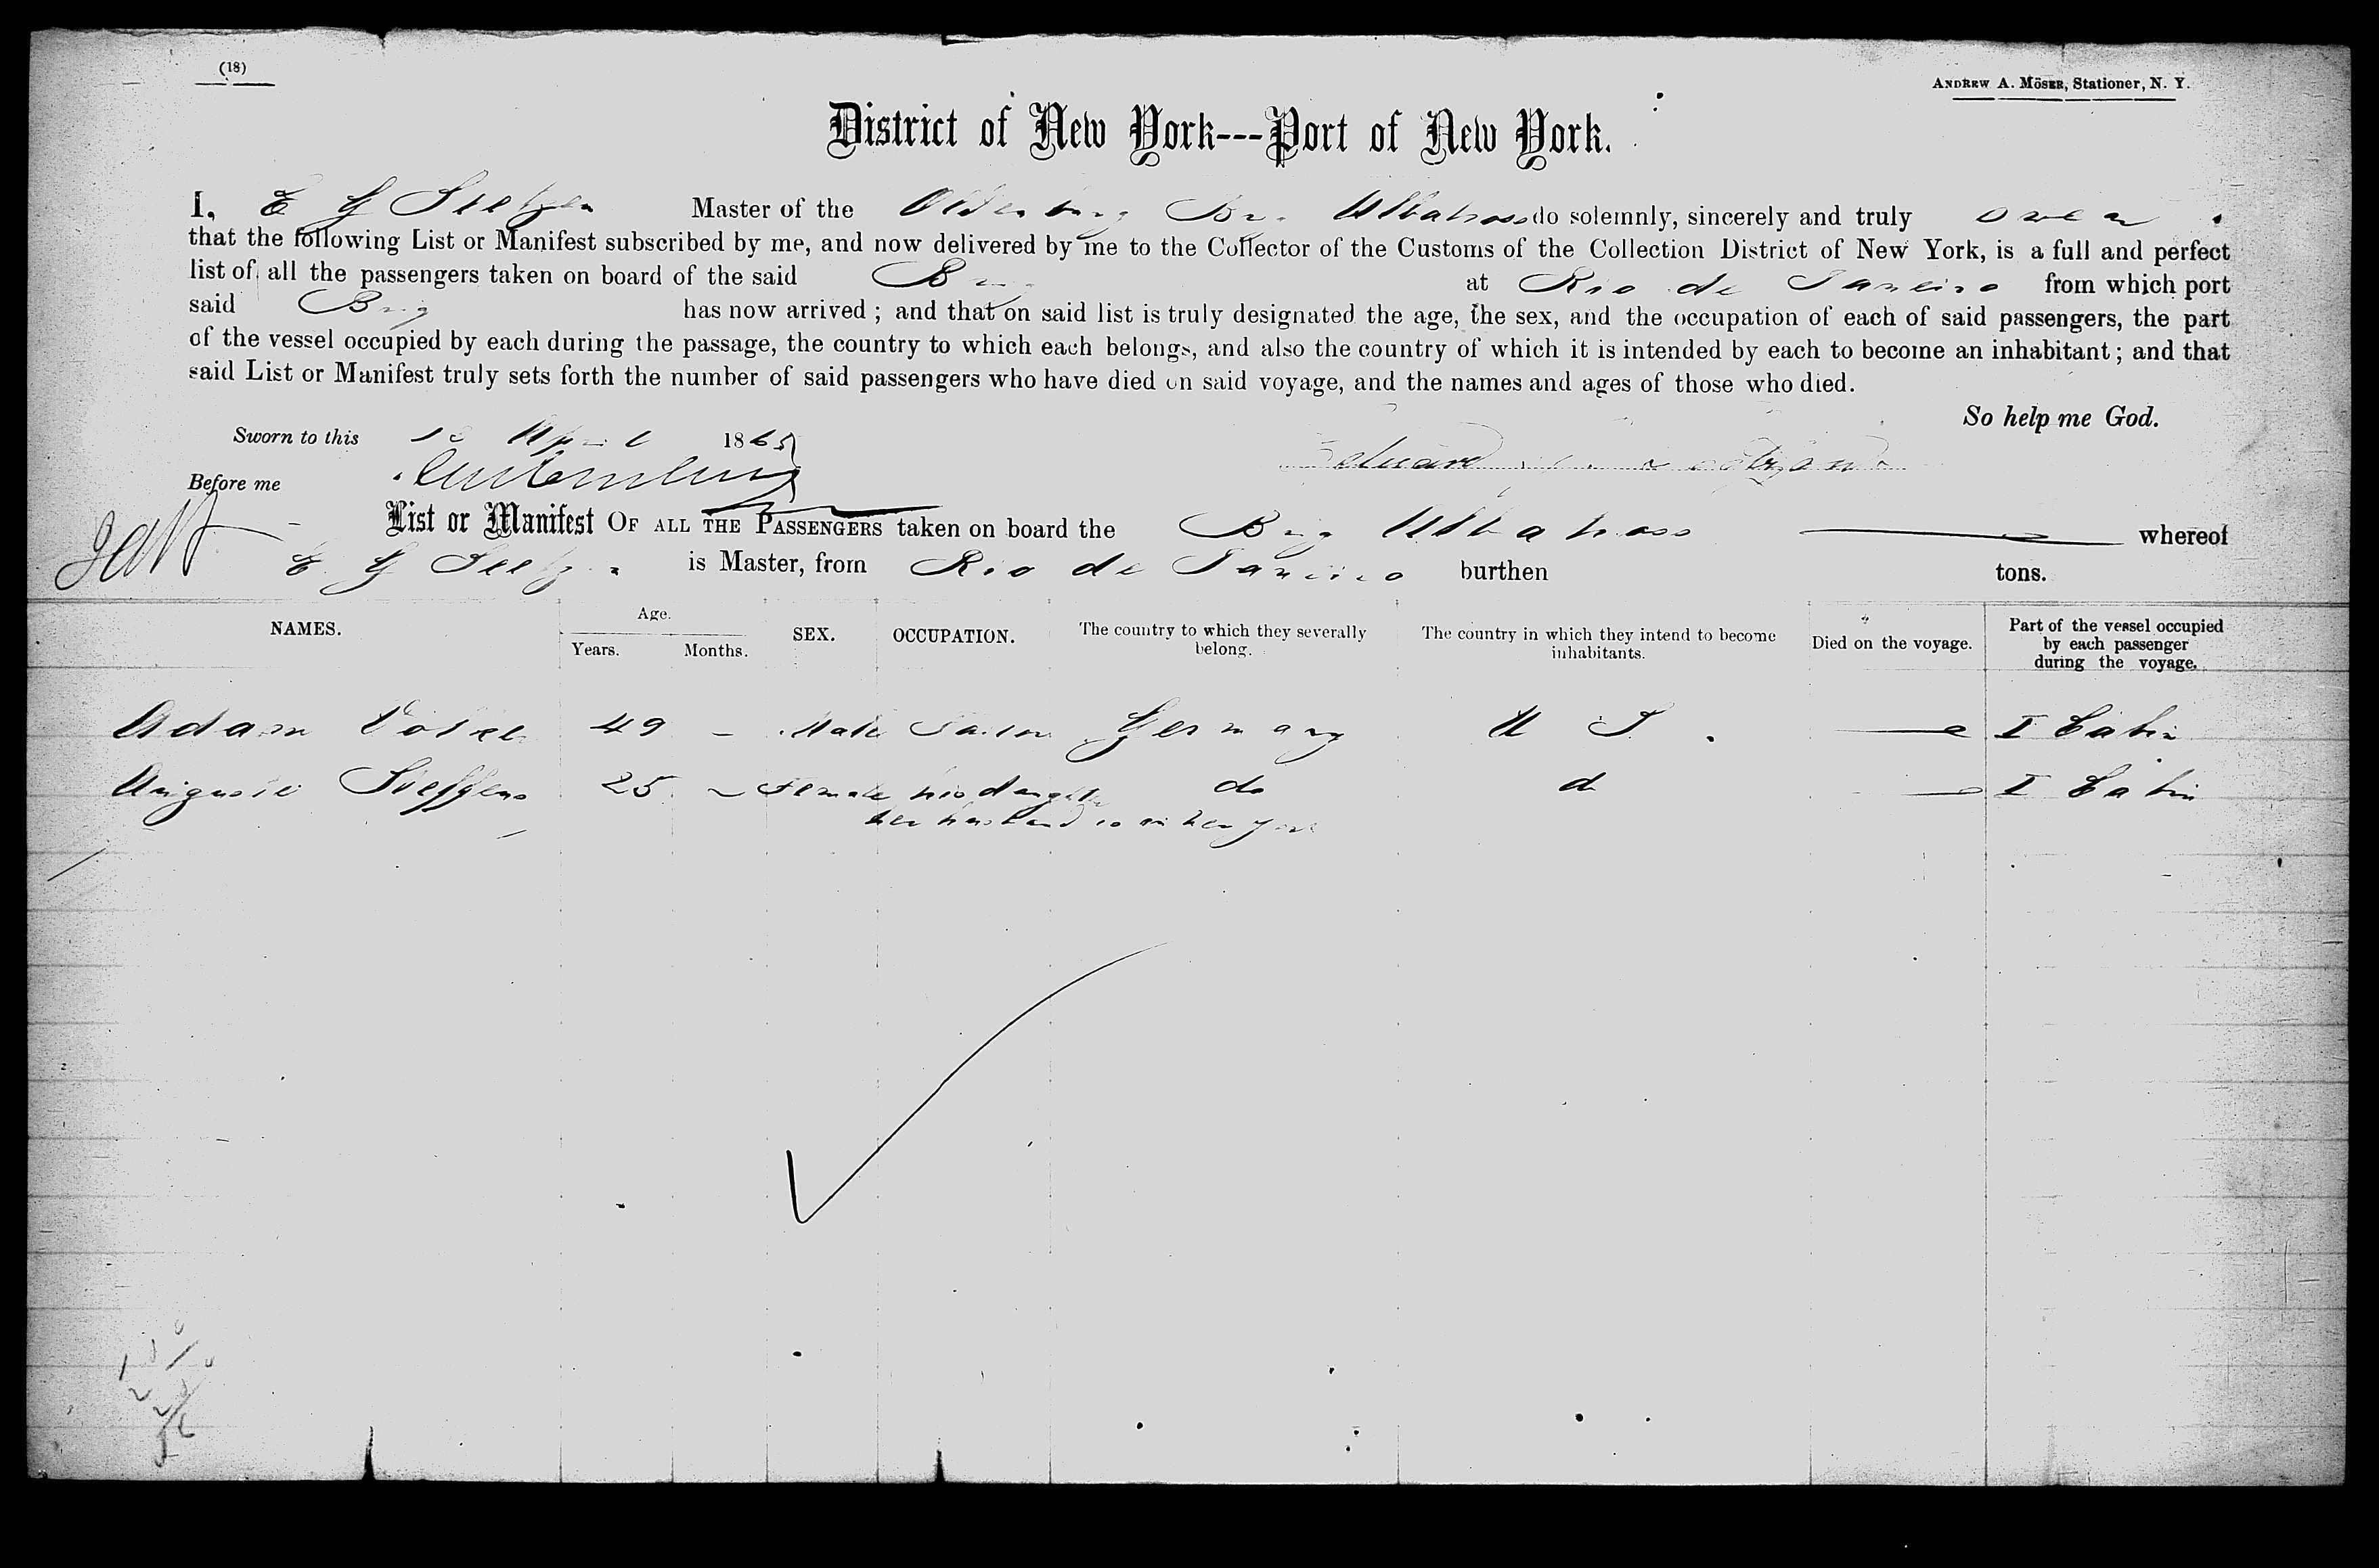 (18)
ANDREW A. MÖSER, Stationer, N. Y.
District of New York---Port of New York.
I, E G Seetzen Master of the Oldenburg Brig Albatross do solemnly, sincerely and truly swear
that the following List or Manifest subscribed by me, and now delivered by me to the Collector of the Customs of the Collection District of New York, is a full and perfect
list of all the passengers taken on board of the said Brig at Rio de Janeiro from which port
said Brig has now arrived ; and that on said list is truly designated the age, the sex, and the occupation of each of said passengers, the part
of the vessel occupied by each during the passage, the country to which each belongs, and also the country of which it is intended by each to become an inhabitant ; and that
said List or Manifest truly sets forth the number of said passengers who have died on said voyage, and the names and ages of those who died.
So help me God.
Sworn to this April 1865
Before me
List or Manifest OF ALL THE PASSENGERS taken on board the Brig Albatross whereof
E. G Seetzen is Master, from Rio de Janeiro burthen tons.
NAMES. Age. Years. Months. SEX. OCCUPATION. The country to which they severally belong. The country in which they intend to become inhabitants. Died on the voyage. Part of the vessel occupied by each passenger during the voyage.
Adam 49 - Male Germany U S. — I Cabin
Auguste Steffens 25 - Female his daughter do do — I Cabin
her husband is in New York